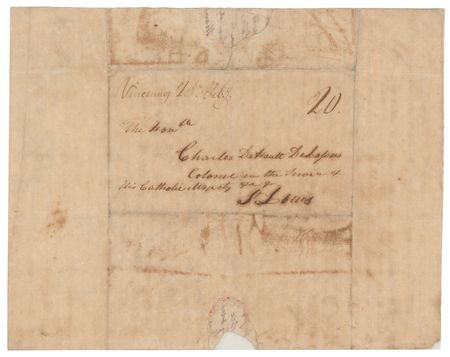 Vincennes 21st Feby.
20.
The Honble
Charles Dehault Delassus
Colonel in the Service of
His Catholic Majesty &c &c
St Louis